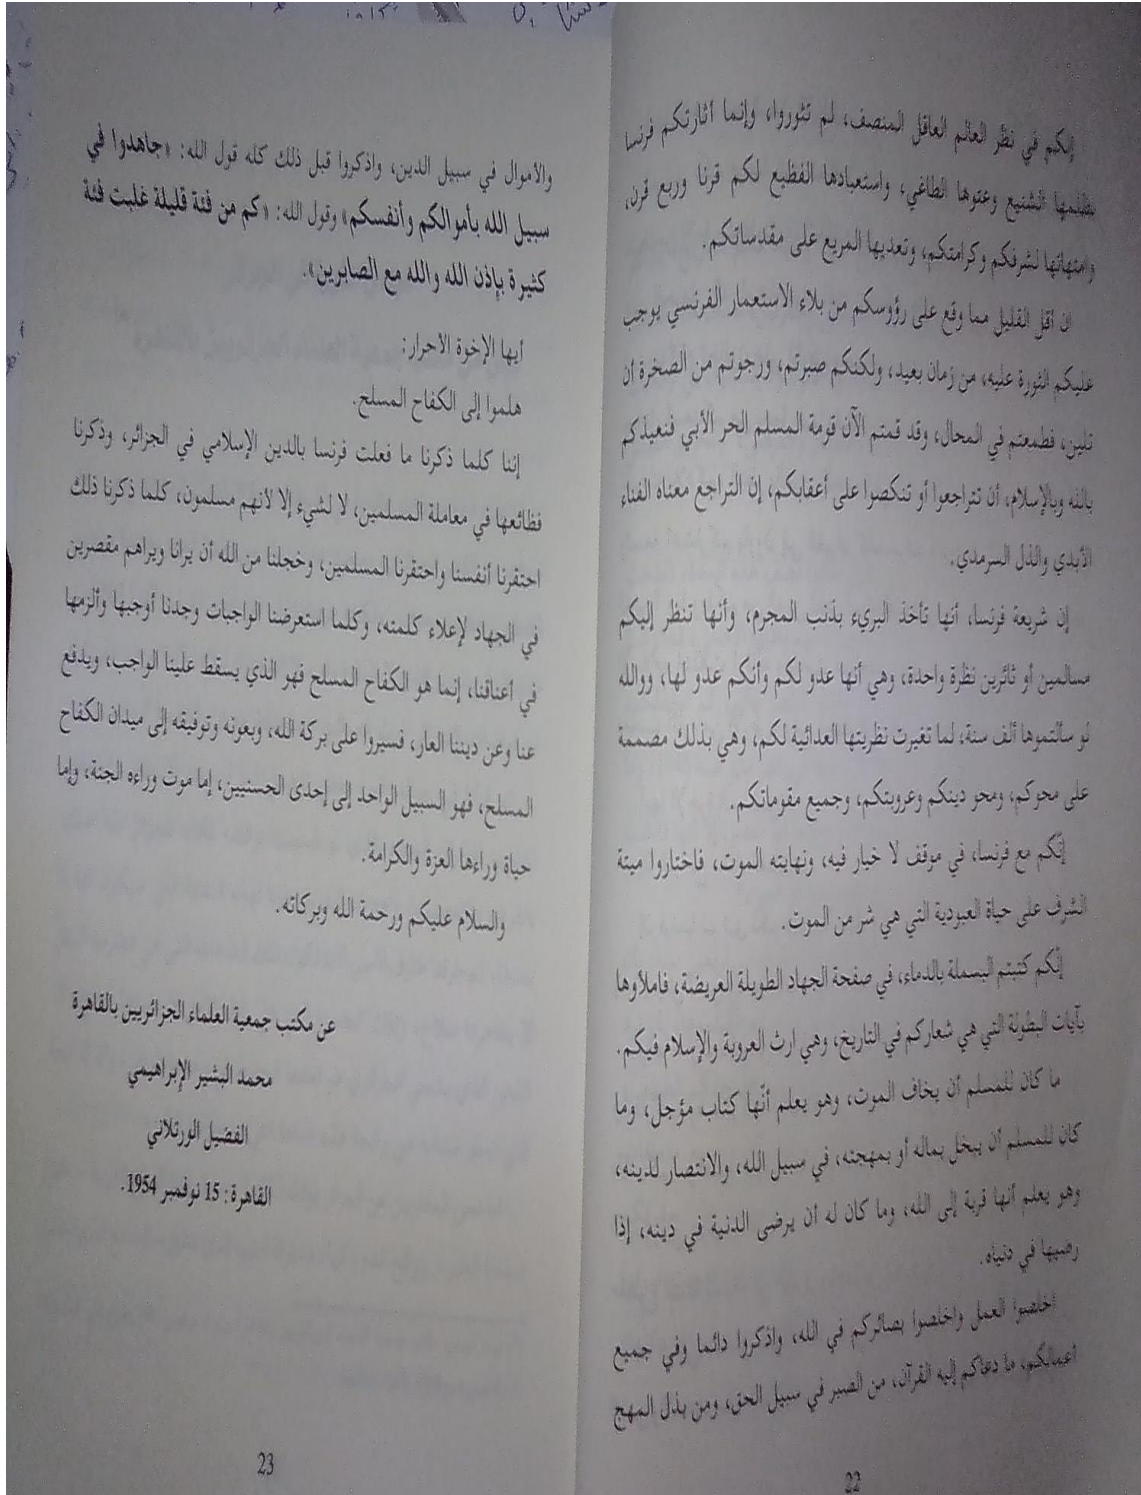 إنكم في نظر العالم العاقل المنصف، لم تثوروا، وإنما أثارتكم فرنسا
بظلمها الشنيع وعتوها الطاغي، واستعبادها الفظيع لكم قرنا وربع قرن،
وامتهانها لشرفكم وكرامتكم، وتعديها المريع على مقدساتكم.
ان أقل القليل مما وقع على رؤوسكم من بلاء الاستعمار الفرنسي يوجب
عليكم الثورة عليه، من زمان بعيد، ولكنكم صبرتم، ورجوتم من الصخرة أن
تلين، فطمعتم في المحال، وقد قمتم الآن قومة المسلم الحر الأبي فنعيذكم
بالله وبالإسلام، أن تتراجعوا أو تنكصوا على أعقابكم، إن التراجع معناه الفناء
الأبدي والذل السرمدي.
إن شريعة فرنسا، أنها تأخذ البريء بذنب المجرم، وأنها تنظر إليكم
مسالمين أو ثائرين نظرة واحدة، وهي أنها عدو لكم وأنكم عدو لها، ووالله
لو سألتموها ألف سنة، لما تغيرت نظريتها العدائية لكم، وهي بذلك مصممة
على محوكم، ومحو دينكم وعروبتكم، وجميع مقوماتكم.
إنّكم مع فرنسا، في موقف لا خيار فيه، ونهايته الموت، فاختاروا ميتة
الشرف على حياة العبودية التي هي شر من الموت.
إنّكم كتبتم البسملة بالدماء، في صفحة الجهاد الطويلة العريضة، فاملأوها
بآيات البطولة التي هي شعاركم في التاريخ، وهي ارث العروبة والإسلام فيكم.
ما كان للمسلم أن يخاف الموت، وهو يعلم أنّها كتاب مؤجل، وما
كان للمسلم أن يبخل بماله أو بمهجته، في سبيل الله، والانتصار لدينه،
وهو يعلم أنها قربة إلى الله، وما كان له أن يرضى الدنية في دينه، إذا
رضيها في دنياه.
اخلصوا العمل واخلصوا بصائركم في الله، واذكروا دائما وفي جميع
اعمالكم، ما دعاكم إليه القرآن، من الصبر في سبيل الحق، ومن بذل المهج
22
والأموال في سبيل الدين، واذكروا قبل ذلك كله قول الله: «جاهدوا في
سبيل الله بأموالكم وأنفسكم» وقول الله: «كم من فئة قليلة غلبت فئة
كثيرة بإذن الله والله مع الصابرين».
أيها الإخوة الاحرار:
هلموا إلى الكفاح المسلح.
إننا كلما ذكرنا ما فعلت فرنسا بالدين الإسلامي في الجزائر، وذكرنا
فظائعها في معاملة المسلمين، لا لشيء إلا لأنهم مسلمون، كلما ذكرنا ذلك
احتقرنا أنفسنا واحتقرنا المسلمين، وخجلنا من الله أن يرانا ويراهم مقصرين
في الجهاد لإعلاء كلمته، وكلما استعرضنا الواجبات وجدنا أوجبها وألزمها
في أعناقنا، إنما هو الكفاح المسلح فهو الذي يسقط علينا الواجب، ويدفع
عنا وعن ديننا العار، فسيروا على بركة الله، وبعونه وتوفيقه إلى ميدان الكفاح
المسلح، فهو السبيل الواحد إلى إحدى الحسنيين، إما موت وراءه الجنة، وإما
حياة وراءها العزة والكرامة.
والسلام عليكم ورحمة الله وبركاته.
عن مكتب جمعية العلماء الجزائريين بالقاهرة
محمد البشير الإبراهيمي
الفضيل الورتلاني
القاهرة : 15 نوفمبر 1954.
23